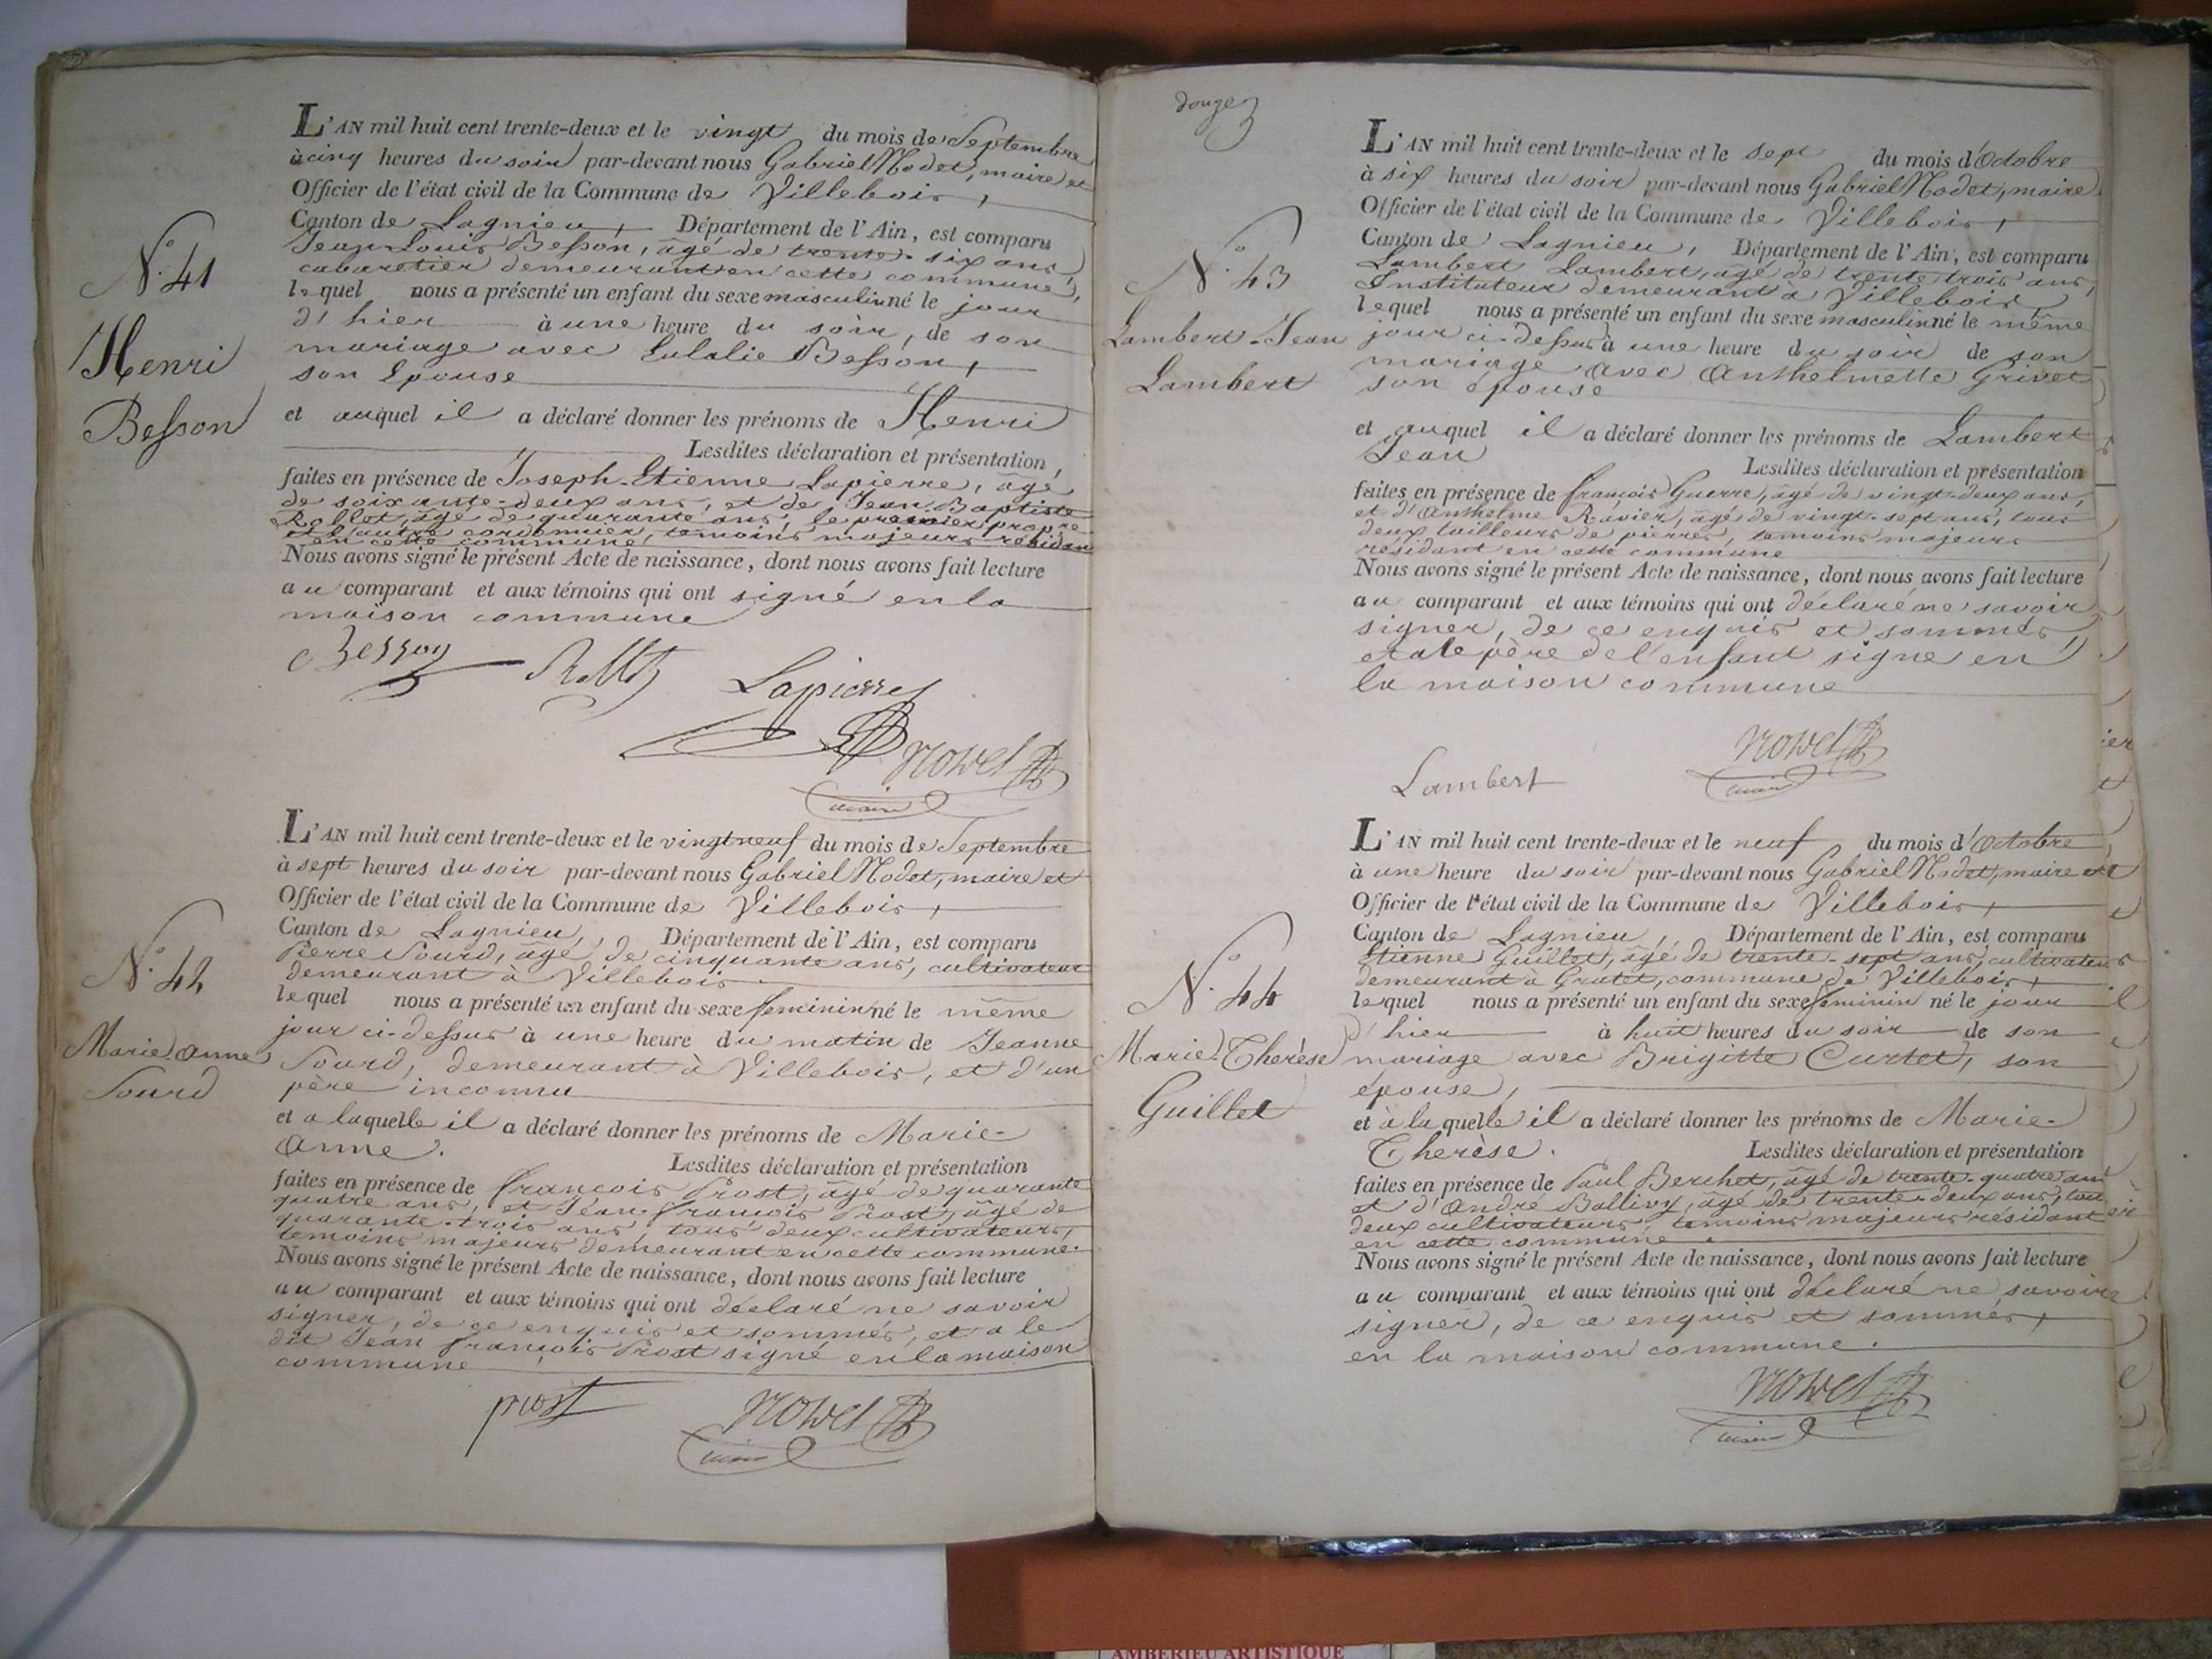 L'AN mil huit cent trente-deux et le vingt du mois de Septembre
à cinq heures du soir par-devant nous Gabriel Nodet, maire et
Officier de l'état civil de la Commune de Villebois,
Canton de Lagnieu, Département de l'Ain, est comparu
Jean Louis Besson, âgé de trente-six ans,
cabaretier demeurant en cette commune,
lequel nous a présenté un enfant du sexe masculin né le jour
d'hier à une heure du soir, de son
mariage avec Eulalie Besson,
son épouse
et auquel il a déclaré donner les prénoms de Henri
Lesdites déclaration et présentation,
faites en présence de Joseph-Etienne Lapierre, âgé
de soixante-deux ans, et de Jean Baptiste
Rollet, âgé de quarante ans, le premier propre
et l'autre cordonnier, témoins majeurs résidan
en cette commune,
Nous avons signé le présent Acte de naissance, dont nous avons fait lecture
au comparant et aux témoins qui ont signé en la
maison commune
Besson Rollet Lapierre
Nodet
maire
N.° 41
Henri
Besson
L'AN mil huit cent trente-deux et le vingt neuf du mois de Septembre
à sept heures du soir par-devant nous Gabriel Nodet, maire et
Officier de l'état civil de la Commune de Villebois,
Canton de Lagnieu, Département de l'Ain, est comparu
Pierre Sourd, âgé de cinquante ans, cultivateur
demeurant à Villebois
lequel nous a présenté un enfant du sexe feminin né le même
jour ci-dessus à une heure du matin de Jeanne
Sourd, demeurant à Villebois, et d'un
père inconnu
et a laquelle il a déclaré donner les prénoms de Marie-
Anne.
Lesdites déclaration et présentation
faites en présence de françois Prost, âgé de quarante
quatre ans, et Jean-françois Prost, âgé de
quarante-trois ans, tous deux cultivateurs,
témoins majeurs demeurant en cette commune.
Nous avons signé le présent Acte de naissance, dont nous avons fait lecture
au comparant et aux témoins qui ont déclaré ne savoir
signer, de ce enquis et sommés, et a le
dit Jean françois Prost signé en la maison
commune
prost Nodet
maire
N.° 42
Marie Anne
Sourd
L'AN mil huit cent trente-deux et le sept du mois d'Octobre
à six heures du soir par-devant nous Gabriel Nodet, maire
Officier de l'état civil de la Commune de Villebois,
Canton de Lagnieu, Département de l'Ain, est comparu
Lambert Lambert, âgé de trente trois ans,
Instituteur demeurant à Villebois
lequel nous a présenté un enfant du sexe masculin né le même
jour ci-dessus à une heure du soir de son
mariage avec Anthelmette Grivet
son épouse
et auquel il a déclaré donner les prénoms de Lambert
Jean
Lesdites déclaration et présentation
faites en présence de françois Guerre, âgé de vingt-deux ans,
et d'Anthelme Ravier, âgé de vingt-sept ans, tous
deux tailleurs de pierres, témoins majeurs
résidant en cette commune
Nous avons signé le présent Acte de naissance, dont nous avons fait lecture
au comparant et aux témoins qui ont déclaré ne savoir
signer, de ce enquis et sommés,
et a le père de l'enfant signé en
la maison commune
Lambert Nodet
maire
N.° 43
Lambert-Jean
Lambert
L'AN mil huit cent trente-deux et le neuf du mois d'Octobre
à une heure du soir par-devant nous Gabriel Nodet, maire et
Officier de l'état civil de la Commune de Villebois,
Canton de Lagnieu, Département de l'Ain, est comparu
Etienne Guillet, âgé de trente-sept ans, cultivateur
demeurant à Grutet, commune de Villebois,
lequel nous a présenté un enfant du sexe feminin né le jour
d'hier à huit heures du soir de son
mariage avec Brigitte Curtet, son
épouse,
et à laquelle il a déclaré donner les prénoms de Marie-
Therèse.
Lesdites déclaration et présentation
faites en présence de Paul Berchet, âgé de trente-quatre ans
et d'André Ballivy, âgé de trente-deux ans, tous
deux cultivateurs, témoins majeurs résidant
en cette commune.
Nous avons signé le présent Acte de naissance, dont nous avons fait lecture
au comparant et aux témoins qui ont déclaré ne savoir
signer, de ce enquis et sommés,
en la maison commune.
Nodet
maire
N.° 44
Marie-Therèse
Guillet
AMBERIEU ARTISTIQUE